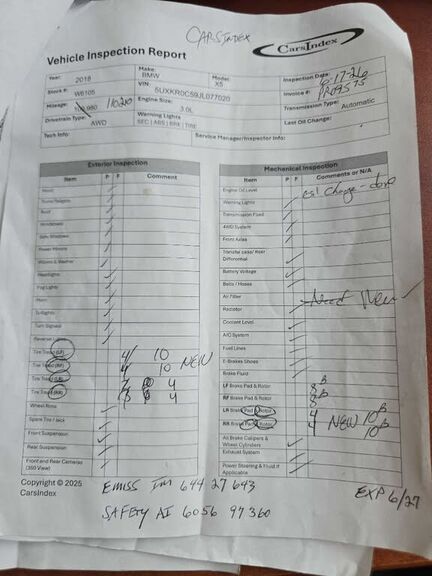 CARSINDEX
CarsIndex
Vehicle Inspection Report
Year: 2018
Make: BMW
Model X5
Inspection Date: 6-17-26
Stock #: W6105
VIN: 5UXKR0C59JL077020
Invoice #:
Mileage: 110,210
Engine Size: 3.0L
Transmission Type: Automatic
Drivetrain Type: AWD
Warning Lights
SEC | ABS | BRK | TIRE
Last Oil Change:
Tech Info:
Service Manager/Inspector Info:
Exterior Inspection
Item P F Comment
Hood
Roof
Windshield
Side Windows
Power Mirrors
Wipers & Washer
Headlights
Fog Lights
Horn
Taillights
Turn Signals
Reverse Lights
Tire Tread (LF) 4 10
Tire Tread (RF) 4 10 NEW
Tire Tread (LR) 4
Tire Tread (RR) 4
Wheel Rims
Spare Tire / Jack
Front Suspension
Rear Suspension
Front and Rear Cameras
(360 View)
Mechanical Inspection
Item P F Comments or N/A
Engine Oil Level oil Change - done
Warning Lights
Transmission Fluid
4WD System
Front Axles
Transfer case/ Rear
Differential
Battery Voltage
Belts / Hoses
Air Filter Need New
Radiator
Coolant Level
A/C System
Fuel Lines
E-Brakes Shoes
Brake Fluid
LF Brake Pad & Rotor 8
RF Brake Pad & Rotor 8
LR Brake Pad & Rotor 4 NEW 10
RR Brake Pad & Rotor 4 10
All Brake Calipers &
Wheel Cylinders
Exhaust System
Power Steering & Fluid if
Applicable
Copyright © 2025
CarsIndex
EMISS IM 644 27 643
EXP 6/27
SAFETY AI 6056 97360